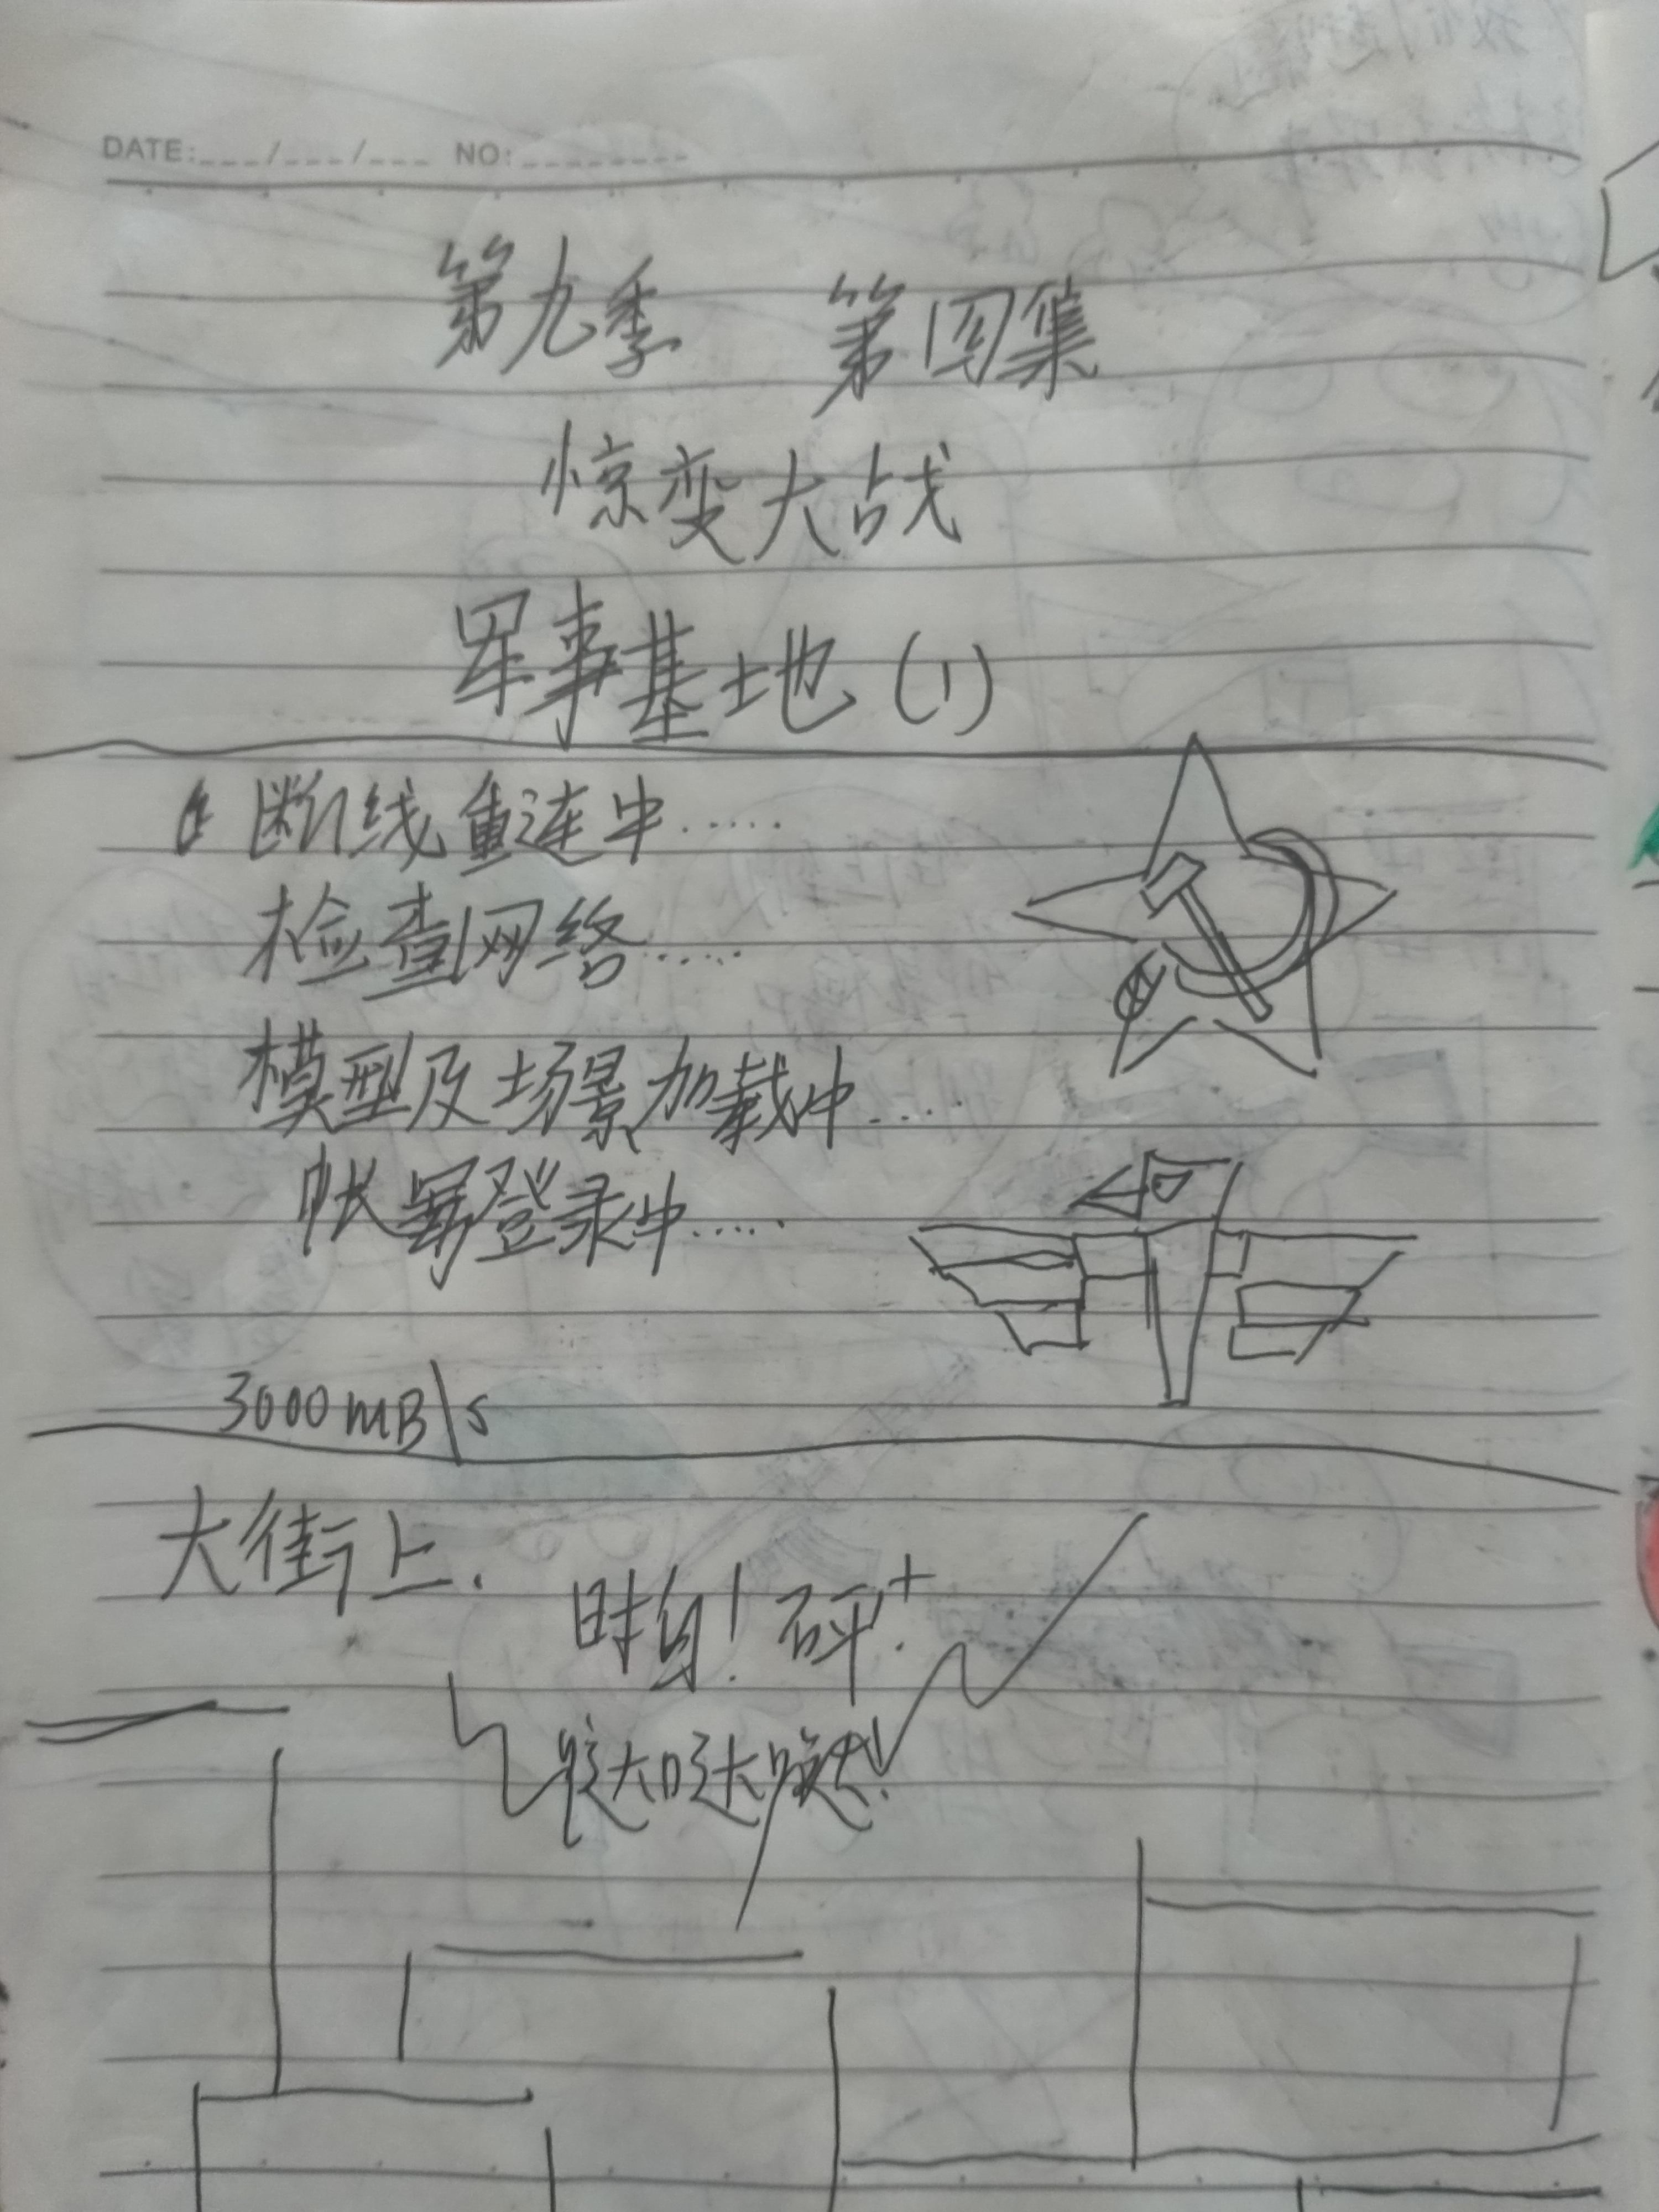 DATE:___/___/___ NO:________
第九季 第四集
惊变大战
军事基地(1)
断线重连中.....
检查网络.....
模型及场景加载中.....
帐号登录中.....
3000mB\s
大街上.
砰!
哒哒哒!